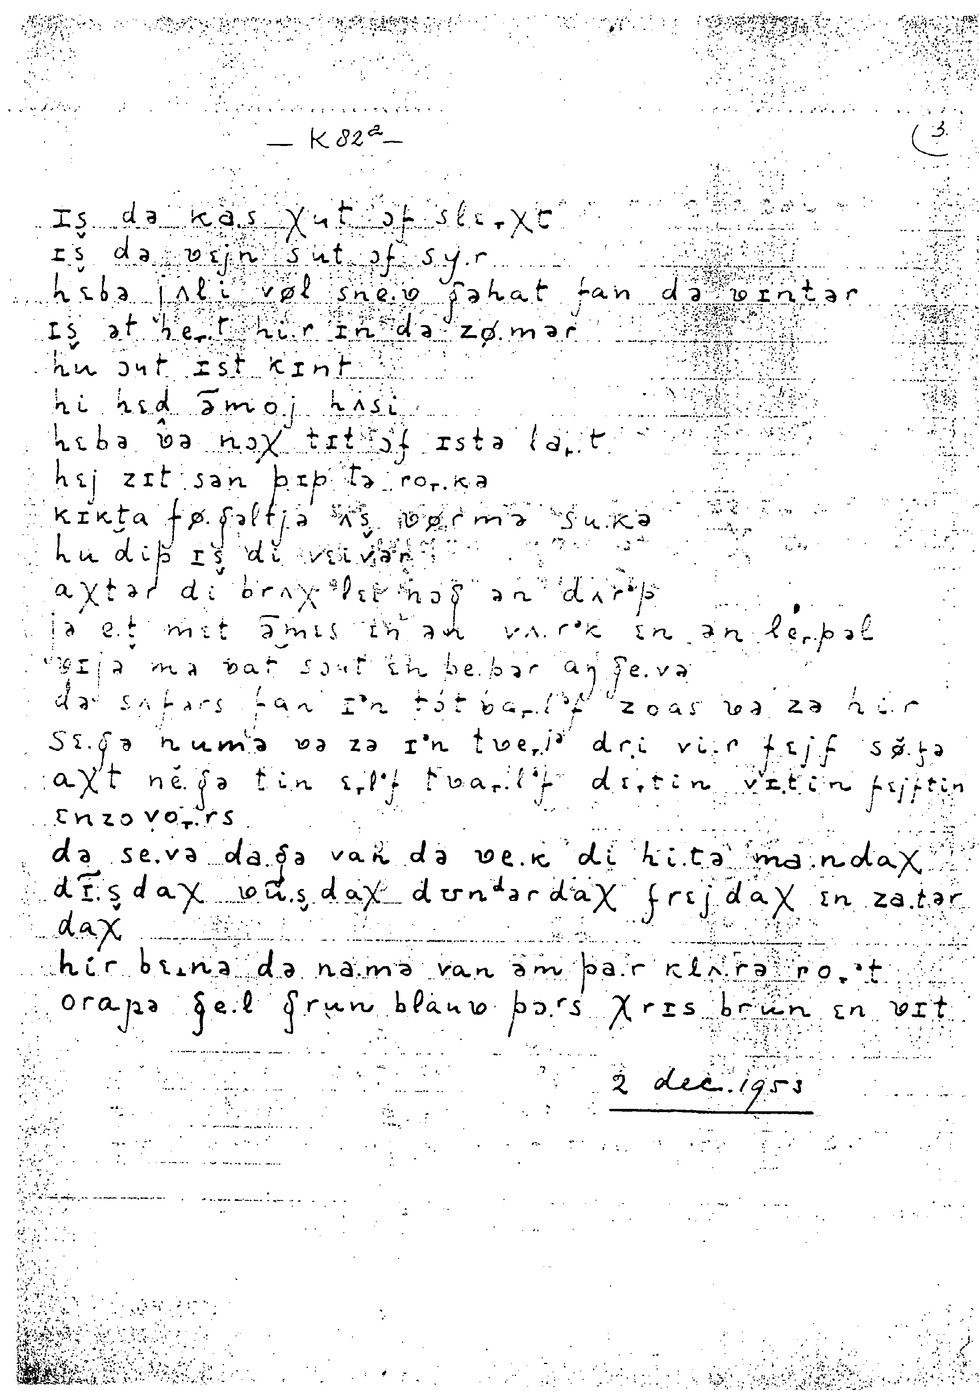 — K 82ª —
3.
ɪš də ka.s χut ɔf slɛ.χt
ɪš də ʋɛjn sut ɔf sy.r
hɛbə jʌli vøl sne.ʋ ɡəhat fan də ʋɪntər
ɪš ət he.t hir in də zø.mər
hu ɔut ɪst kɪnt
hi hɛd āmoj hʌsi
hɛbə ʋə nɔχ tɪt ɔf ɪstə la.t
hɛj zɪt sən pɪp tə ro.kə
kɪkta fø.ɡəltjə ʌš ʋørmə su.kə
hu dip ɪš di
aχtər di brʌχ lɛi nɔɡ ən dʌrᵊp
jə e.t mɛt āmɛs ɛn ən vʌ.rᵊk ɛn ən le.pəl
ʋɪjə mə ʋat sɔut ɛn pe.pər aŋ ɡe.və
də sʌfərs fan ɪᵊn tɔt ʋa.lᵊf zoas ʋə zə hi.r
sɛ.ɡə numə ʋə zə ɪᵊn tʋe.jə dri vi.r fɛjf sø.fə
aχt ne.ɡə tin ɛ.lᵊf tʋa.lᵊf dɛ.tin vɪ.tin fɛjftin
ɛnzovo.rs
də se.və da.ɡə van də ʋe.k di hi.tə ma.ndaχ
dī.šdaχ ʋū.šdaχ dʊnᵈərdaχ frɛjdaχ ɛn za.tər
daχ
hir bɛ.nə də na.mə van əm pa.r klʌ.rə ro.ᵊt
orapə ɡe.l ɡrun blauʋ pɔ.rs χrɪs brun ɛn ʋɪt
2 dec. 1953